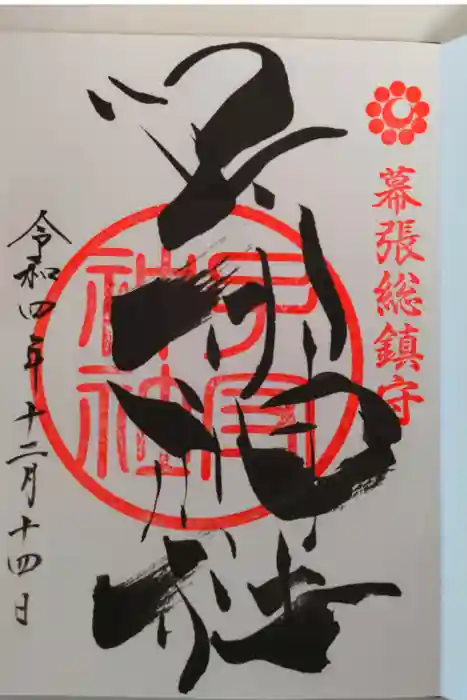 幕張総鎮守
子守
神社
令和四年十二月十四日